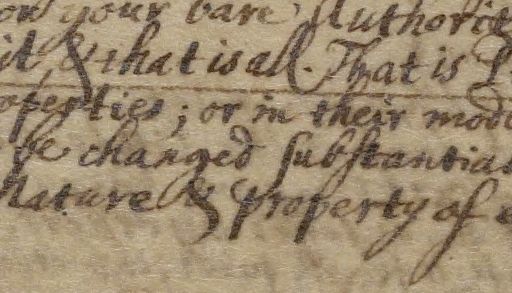 your bare Authoritie
it, & that is all. That is
operties; or in their mod
be changed substantial
nature & property of